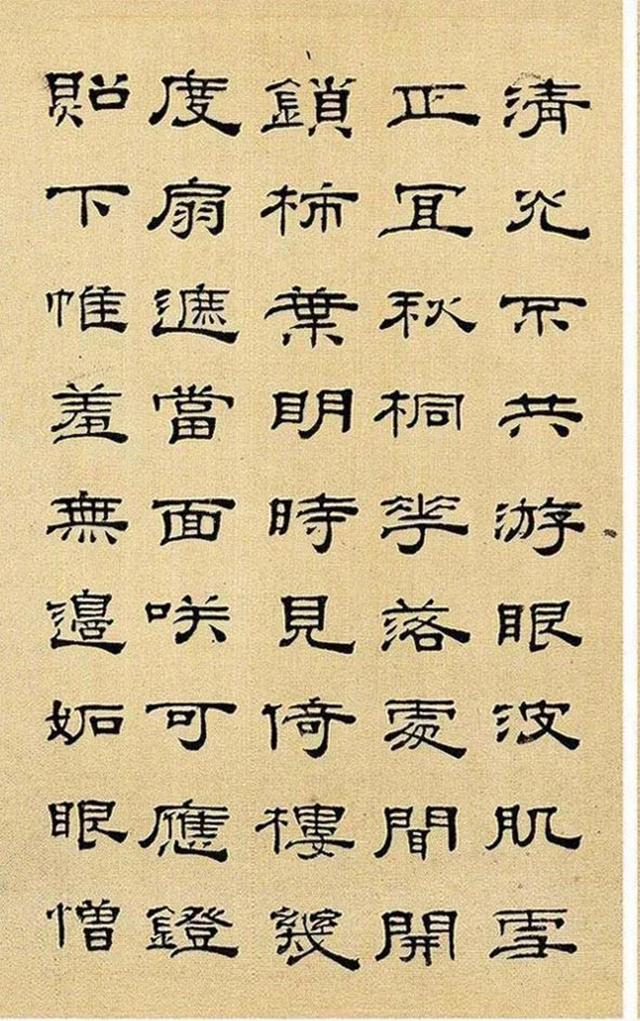 清光不共游眼波肌雪
正宜秋桐華落處聞開
鎖柿葉明時見倚樓幾
度扇遮當面咲可應鐙
貽下帷羞無邊妬眼憎